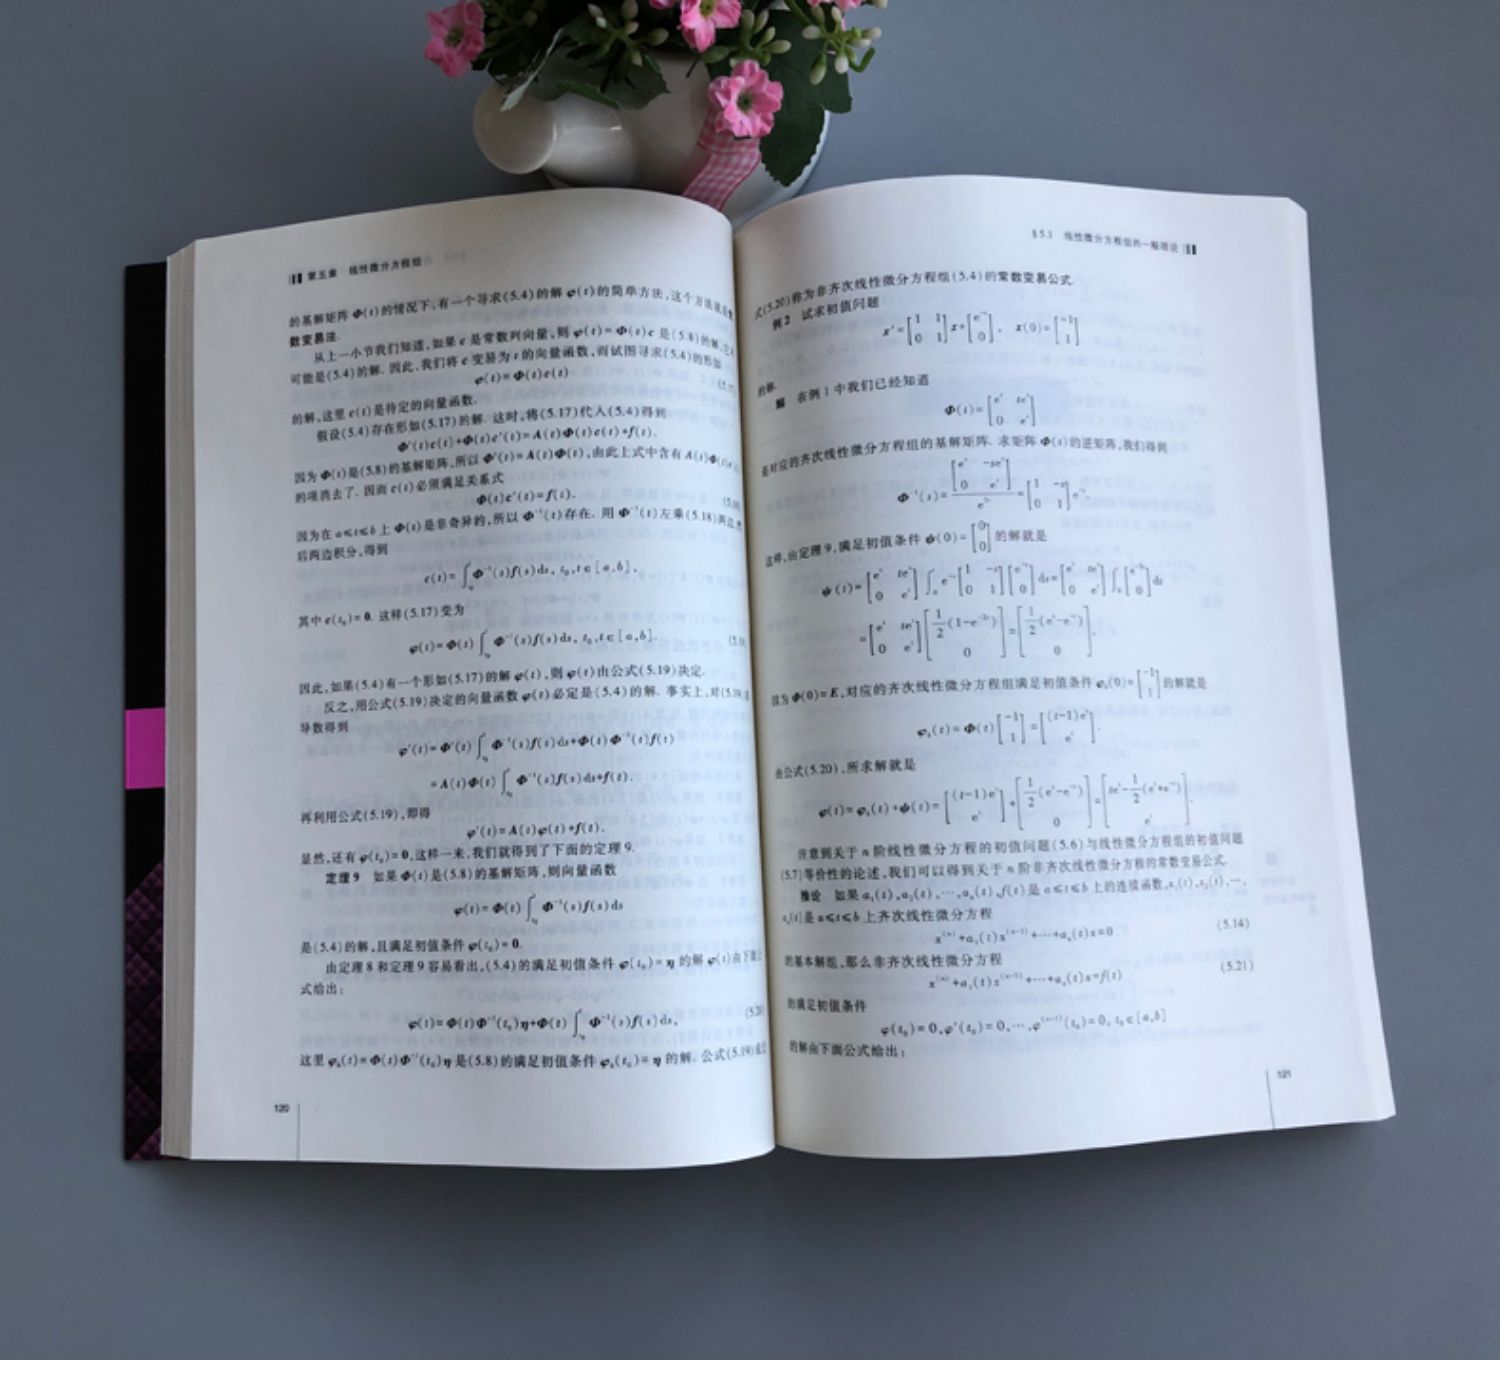 第五章 线性微分方程组
的基解矩阵 Φ(t)的情况下,有一个寻求(5.4)的解 φ(t)的简单方法,这个方法就
数变易法.
从上一小节我们知道,如果 c 是常数列向量,则 φ(t)=Φ(t)c 是(5.8)的解,它
可能是(5.4)的解. 因此,我们将 c 变易为 t 的向量函数,而试图寻求(5.4)的形如
φ(t)=Φ(t)c(t)
的解,这里 c(t)是待定的向量函数.
假设(5.4)存在形如(5.17)的解. 这时,将(5.17)代入(5.4)得到
Φ′(t)c(t)+Φ(t)c′(t)=A(t)Φ(t)c(t)+f(t).
因为 Φ(t)是(5.8)的基解矩阵,所以 Φ′(t)=A(t)Φ(t),由此上式中含有 A(t)Φ(t)
的项消去了. 因而 c(t)必须满足关系式
Φ(t)c′(t)=f(t).
因为在 a≤t≤b 上 Φ(t)是非奇异的,所以 Φ⁻¹(t)存在. 用 Φ⁻¹(t)左乘(5.18)两边,然
后两边积分,得到
c(t)=∫_{t₀}^{t} Φ⁻¹(s)f(s)ds, t₀,t∈[a,b],
其中 c(t₀)=0. 这样(5.17)变为
φ(t)=Φ(t)∫_{t₀}^{t} Φ⁻¹(s)f(s)ds, t₀,t∈[a,b].
因此,如果(5.4)有一个形如(5.17)的解 φ(t),则 φ(t)由公式(5.19)决定.
反之,用公式(5.19)决定的向量函数 φ(t)必定是(5.4)的解. 事实上,对(5.19)
导数得到
φ′(t)=Φ′(t)∫_{t₀}^{t} Φ⁻¹(s)f(s)ds+Φ(t)Φ⁻¹(t)f(t)
=A(t)Φ(t)∫_{t₀}^{t} Φ⁻¹(s)f(s)ds+f(t).
再利用公式(5.19),即得
φ′(t)=A(t)φ(t)+f(t).
显然,还有 φ(t₀)=0,这样一来,我们就得到了下面的定理 9.
定理 9 如果 Φ(t)是(5.8)的基解矩阵,则向量函数
φ(t)=Φ(t)∫_{t₀}^{t} Φ⁻¹(s)f(s)ds
是(5.4)的解,且满足初值条件 φ(t₀)=0.
由定理 8 和定理 9 容易看出,(5.4)的满足初值条件 φ(t₀)=η 的解 φ(t)由下
式给出:
φ(t)=Φ(t)Φ⁻¹(t₀)η+Φ(t)∫_{t₀}^{t} Φ⁻¹(s)f(s)ds,
这里 φₕ(t)=Φ(t)Φ⁻¹(t₀)η 是(5.8)的满足初值条件 φₕ(t₀)=η 的解. 公式(5.19)
120
§5.3 线性微分方程组的一般理论
式(5.20)称为非齐次线性微分方程组(5.4)的常数变易公式.
例 2 试求初值问题
x′=[1 1; 0 1]x+[e⁻ᵗ; 0], x(0)=[-1; 1]
的解.
解 在例 1 中我们已经知道
Φ(t)=[eᵗ teᵗ; 0 eᵗ]
是对应的齐次线性微分方程组的基解矩阵. 求矩阵 Φ(t)的逆矩阵,我们得到
Φ⁻¹(s)=[eˢ -seˢ; 0 eˢ]/e²ˢ=[1 -s; 0 1]e⁻ˢ.
这样,由定理 9,满足初值条件 ψ(0)=[0; 0]的解就是
ψ(t)=[eᵗ teᵗ; 0 eᵗ]∫₀ᵗ e⁻ˢ[1 -s; 0 1][e⁻ˢ; 0]ds=[eᵗ teᵗ; 0 eᵗ]∫₀ᵗ[e⁻²ˢ; 0]ds
=[eᵗ teᵗ; 0 eᵗ][1/2(1-e⁻²ᵗ); 0]=[1/2(eᵗ-e⁻ᵗ); 0].
因为 Φ(0)=E,对应的齐次线性微分方程组满足初值条件 φₕ(0)=[-1; 1]的解就是
φₕ(t)=Φ(t)[-1; 1]=[(t-1)eᵗ; eᵗ].
由公式(5.20),所求解就是
φ(t)=φₕ(t)+ψ(t)=[(t-1)eᵗ; eᵗ]+[1/2(eᵗ-e⁻ᵗ); 0]=[teᵗ-1/2(eᵗ+e⁻ᵗ); eᵗ].
注意到关于 n 阶线性微分方程的初值问题(5.6)与线性微分方程组的初值问题
(5.7)等价性的论述,我们可以得到关于 n 阶非齐次线性微分方程的常数变易公式.
推论 如果 a₁(t),a₂(t),⋯,aₙ(t),f(t)是 a≤t≤b 上的连续函数,x₁(t),x₂(t),⋯,
xₙ(t)是 a≤t≤b 上齐次线性微分方程
x⁽ⁿ⁾+a₁(t)x⁽ⁿ⁻¹⁾+⋯+aₙ(t)x=0 (5.14)
的基本解组,那么非齐次线性微分方程
x⁽ⁿ⁾+a₁(t)x⁽ⁿ⁻¹⁾+⋯+aₙ(t)x=f(t) (5.21)
的满足初值条件
φ(t₀)=0,φ′(t₀)=0,⋯,φ⁽ⁿ⁻¹⁾(t₀)=0, t₀∈[a,b]
的解由下面公式给出:
121